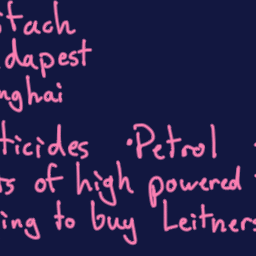 tach
dapest
nghai
ticides · Petrol
s of high powered
ing to buy Leitners